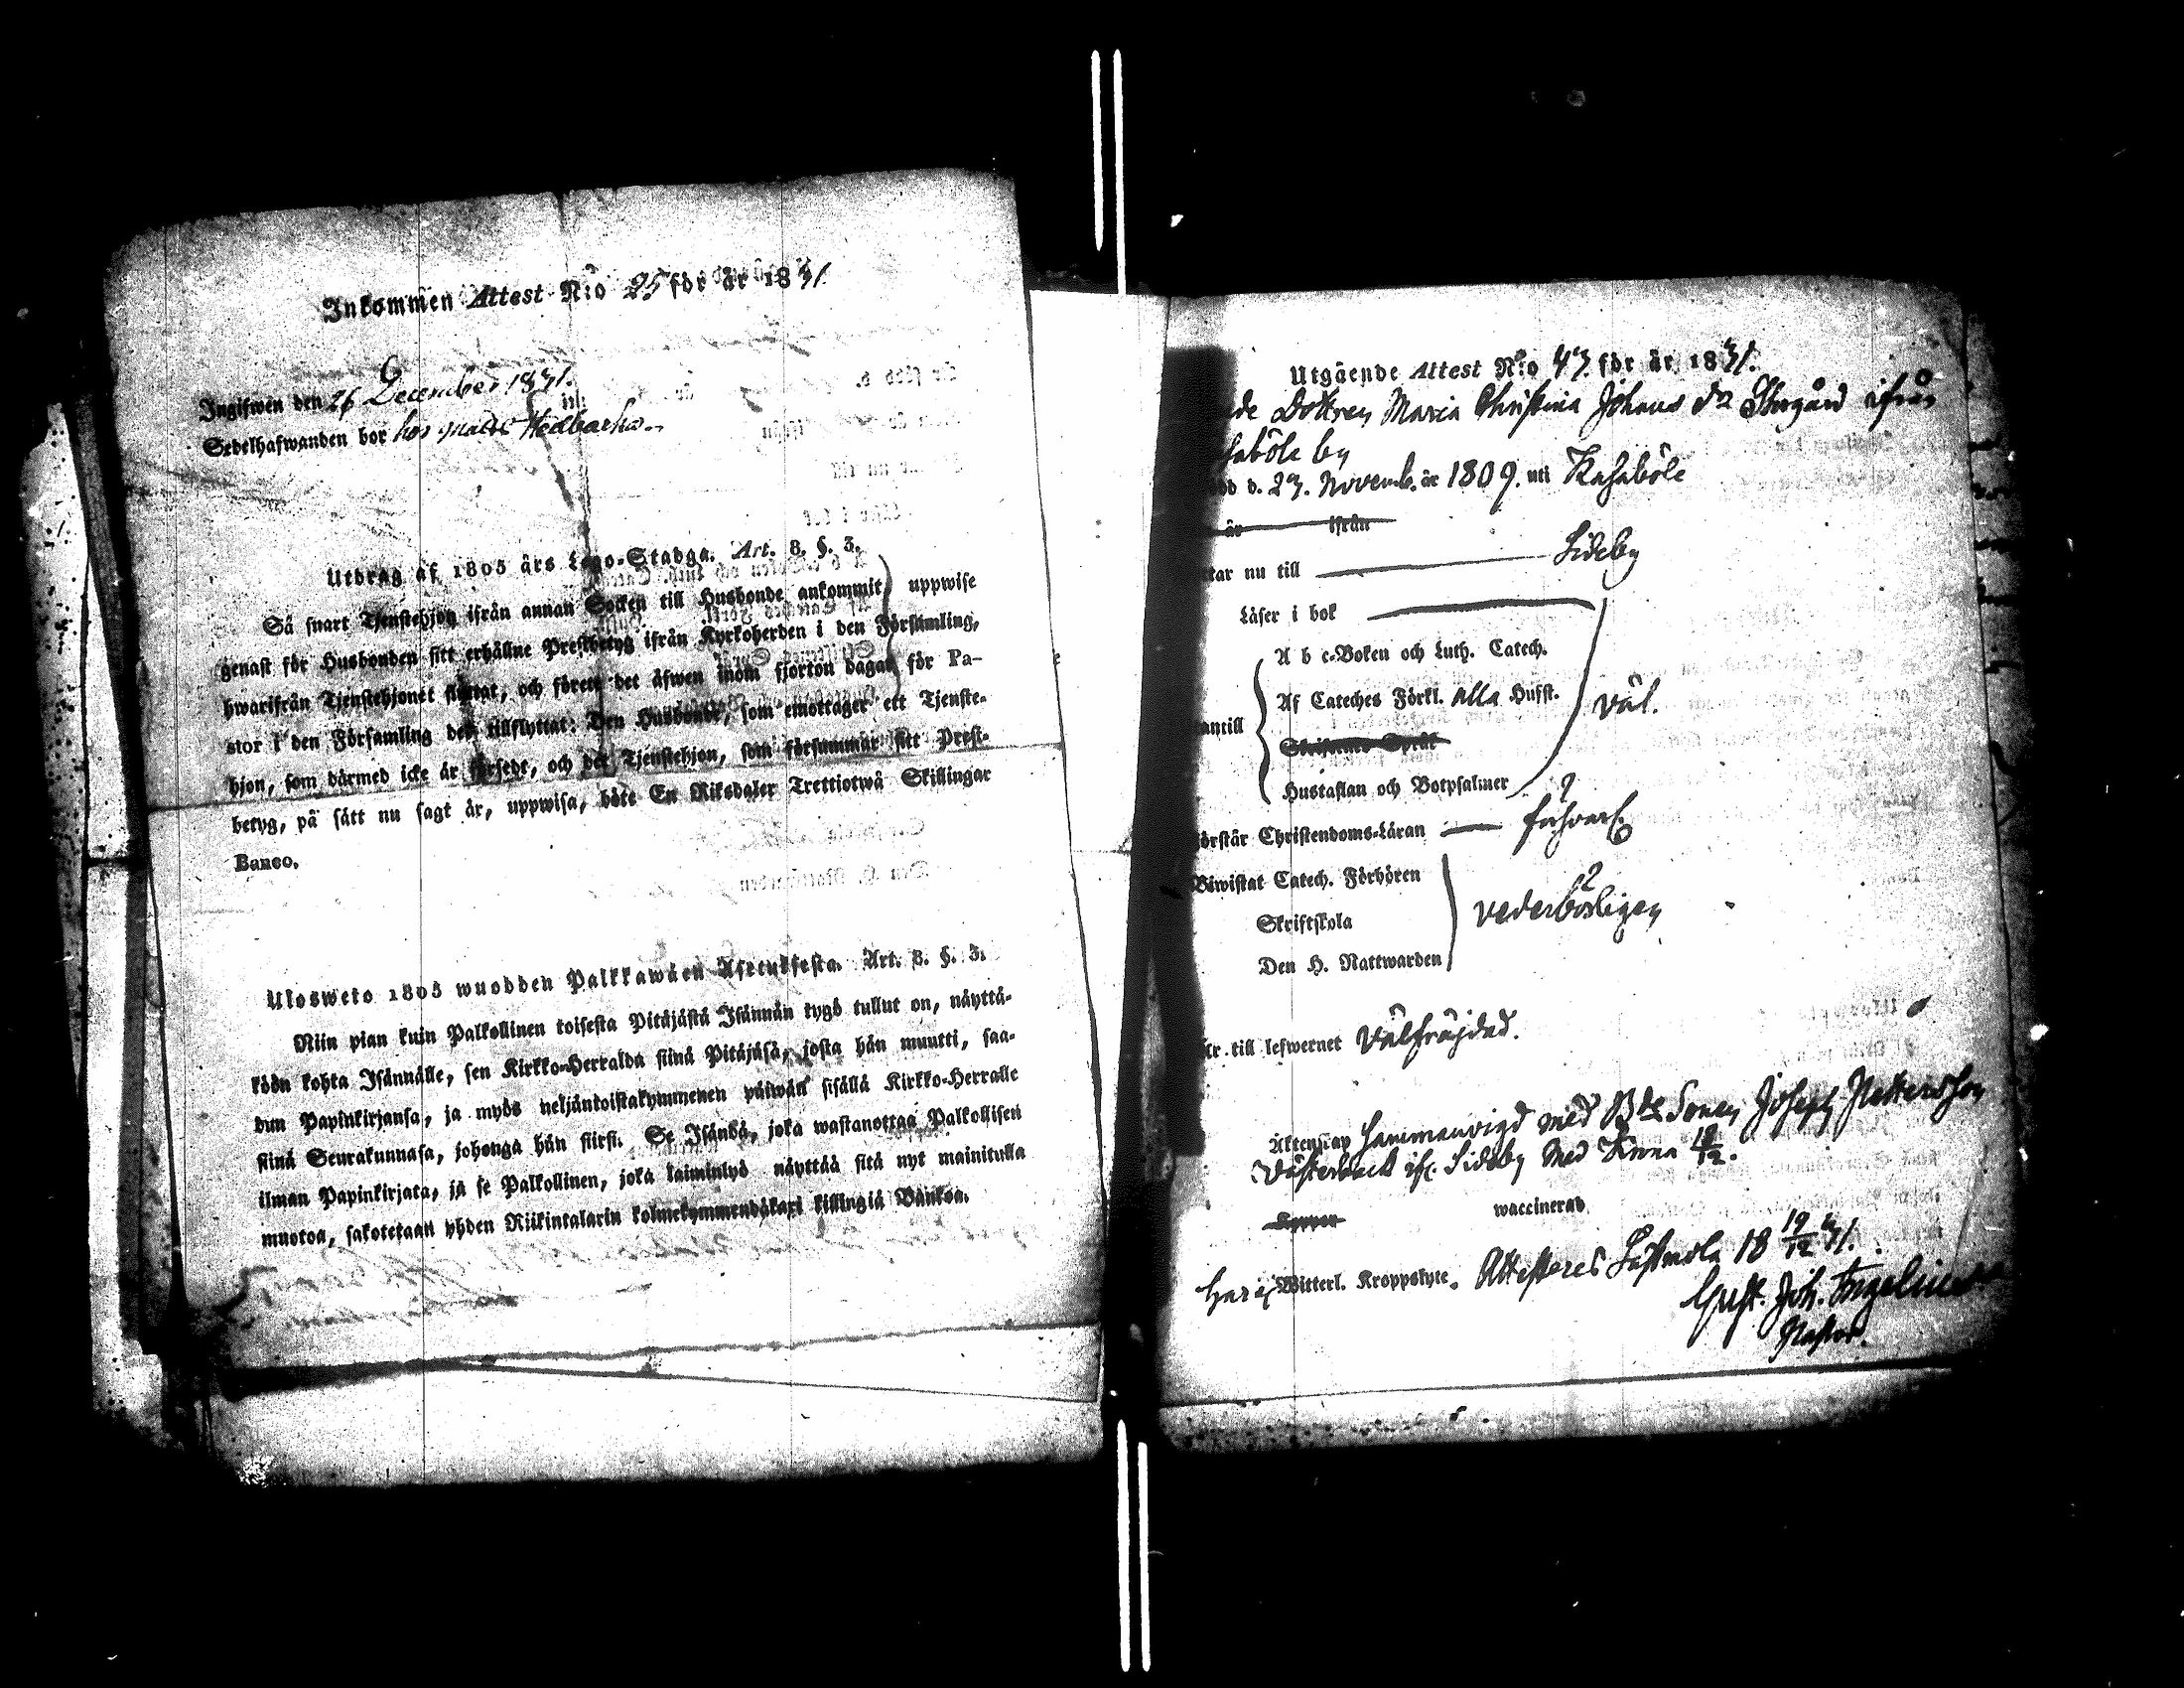 Inkommen Attest N:o 25 för år 1831.
Ingifwen den 26 December 1831.
Sedelhafwanden bor hos Matts
Utdrag af 1805 års Lego-Stadga. Art. 8. §. 3.
Så snart Tjenstehjon ifrån annan Socken till Husbonde ankommit, uppwise
genast för Husbonden sitt erhållne Prestbetyg ifrån Kyrkoherden i den Församling,
hwarifrån Tjenstehjonet flyttat, och förete det äfwen inom fjorton dagar för Pa-
stor i den Församling det tillflyttat: Den Husbonde, som emottager ett Tjenste-
hjon, som därmed icke är försedt, och det Tjenstehjon, som försummar sitt Prest-
betyg, på sätt nu sagt är, uppwisa, böte En Riksdaler Trettiotwå Skillingar
Banco.
Ulosweto 1805 wuodden Palkkawäen Asetuksesta. Art. 8. §. 3.
Niin pian kuin Palkollinen toisesta Pitäjästä Isännän tygö tullut on, näyttä-
köön kohta Isännälle, sen Kirkko-Herralda siinä Pitäjäsä, josta hän muutti, saa-
dun Papinkirjansa, ja myös neljäntoistakymmenen päiwän sisällä Kirkko-Herralle
siinä Seurakunnasa, johonga hän siirsi. Se Isändä, joka wastanottaa Palkollisen
ilman Papinkirjata, ja se Palkollinen, joka laiminlyö näyttää sitä nyt mainitulla
muotoa, sakotetaan yhden Riikintalarin kolmekymmendäkaxi killingiä Bankoa.
Utgående Attest N:o 47. för år 1831.
Dottren Maria Christina Johans dr Storgård ifrån
böle by
d. 27. Novemb. år 1809. uti Kasaböle
år ifrån
nu till Sideby
Läser i bok
A b c-Boken och Luth. Catech.
Af Cateches Förkl. alla Hufst.
antill väl.
Skriftenes Språk
Hustaflan och Botpsalmer
Förstår Christendoms-Läran försvarl.
Biwistat Catech. Förhören
Skriftskola vederbörligen
Den H. Nattwarden
Är till lefwernet välfräjdad.
Äktenskap sammanvigd med Bde Sonen Joseph Pettersson
Västerback ifr. Sideby
Koppor waccinerad
Har ej Witterl. Kroppslyte. Attesteras Sastmola 18 19/12 31.
Gust. Joh. Ingelius
Pastor.